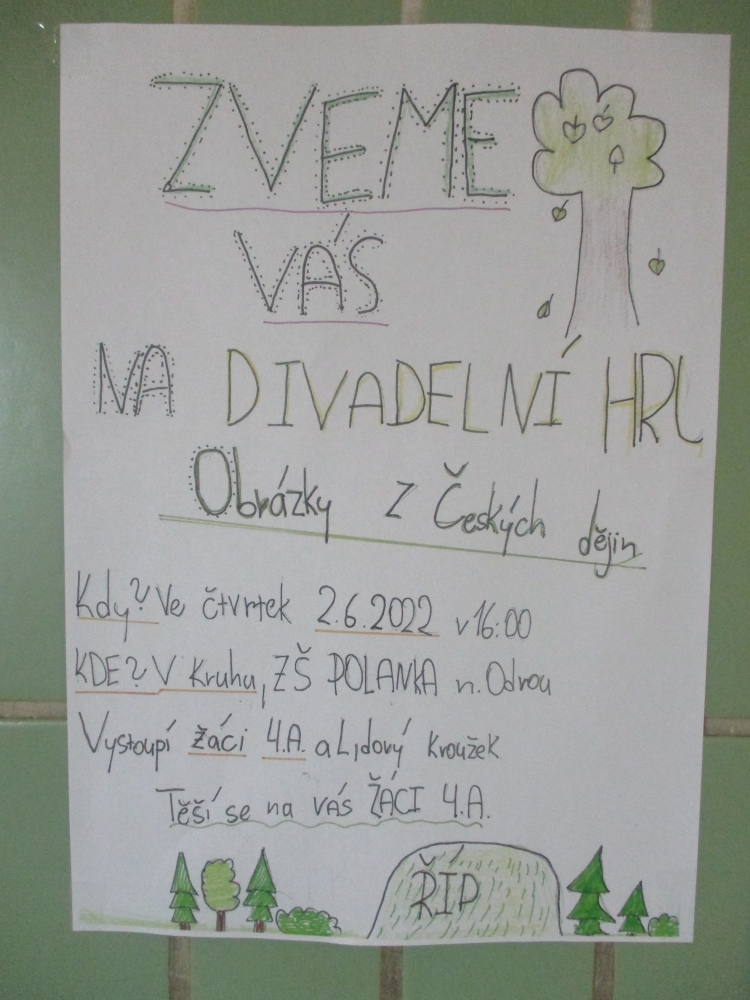 ZVEME
VÁS
NA DIVADELNÍ HRU
Obrázky z Českých dějin
Kdy? Ve čtvrtek 2.6.2022 v 16:00
KDE? V Kruhu, ZŠ POLANKA n. Odrou
Vystoupí žáci 4.A. a Lidový kroužek
Těší se na vás ŽÁCI 4.A.
ŘÍP